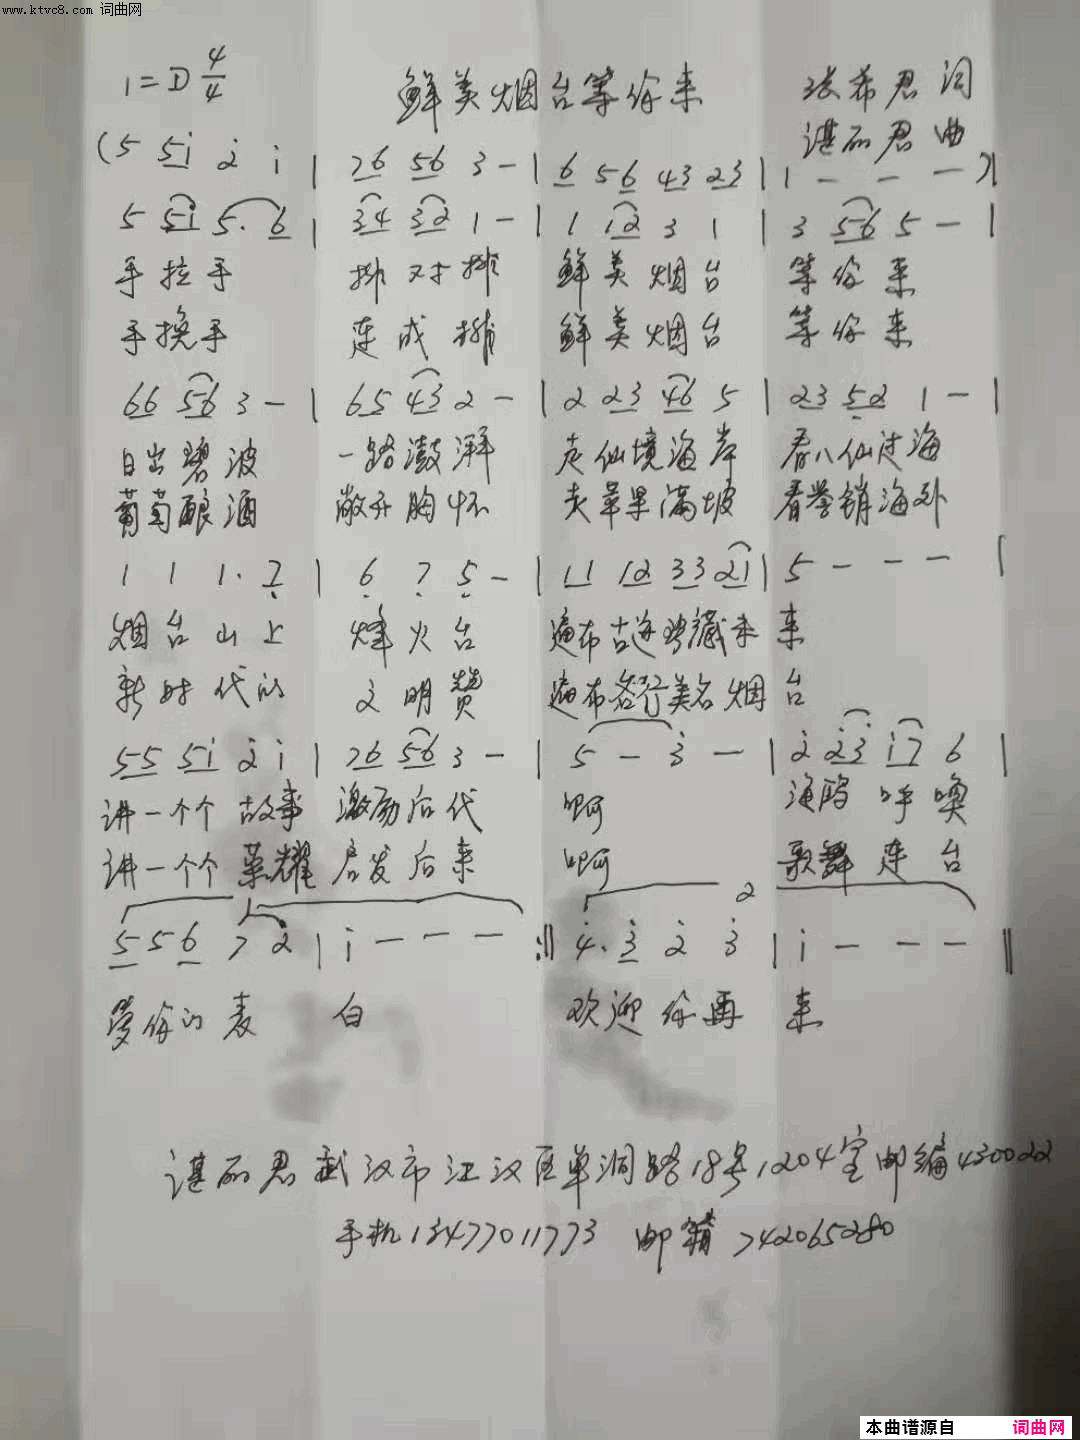 www.ktvc8.com 词曲网
1=D 4/4 鲜美烟台等你来 张希君 词
谌丽君 曲
(5 5i 2 i | 76 56 3 - | 6 56 43 23 | 1 - - - )|
5 5i 5. 6 | 34 32 1 - | 1 12 3 1 | 3 56 5 - |
手拉手 排对排 鲜美烟台 等你来
手换手 连成排 鲜美烟台 等你来
66 56 3 - | 65 43 2 - | 2 23 46 5 | 23 52 1 - |
日出碧波 一路澎湃 走仙境海岸 看八仙过海
葡萄酿酒 敞开胸怀 夹苹果满坡 看誉销海外
1 1 1. 7 | 6 7 5 - | 11 12 33 21 | 5 - - - |
烟台山上 烽火台 遍布古迹 藏未来
新时代的 文明赞 遍布各行美名烟台
55 5i 2 i | 76 56 3 - | 5 - 3 - | 2 23 i7 6 |
讲一个个故事 激励后代 啊 海鸥呼唤
讲一个个荣耀 启发后来 啊 歌舞连台
1 2
5 5 6 7 2 | i - - - :|| 4. 3 2 3 | i - - - ||
爱你的表 白 欢迎你再 来
谌丽君 武汉市江汉区单洞路18号1204室 邮编430022
手机13477011773 邮箱742065280
本曲谱源自 词曲网